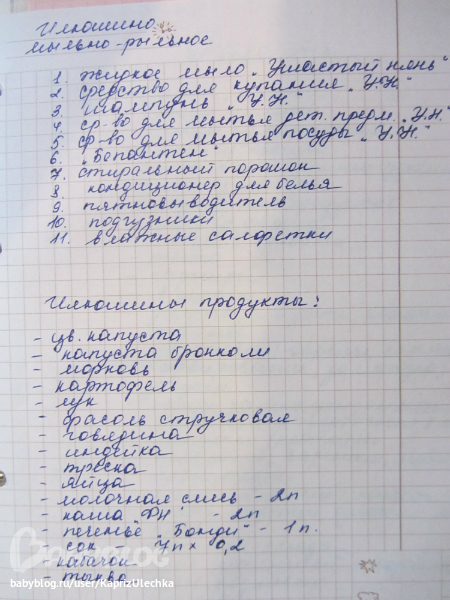 Илюшино
мыльно-рыльное
1. жидкое мыло „Ушастый нянь"
2. средство для купания „У.Н."
3. шампунь „У.Н."
4. ср-во для мытья дет. предм. „У.Н."
5. ср-во для мытья посуды „У.Н."
6. „Бепантен"
7. стиральный порошок
8. кондиционер для белья
9. пятновыводитель
10. подгузники
11. влажные салфетки
Илюшины продукты:
- цв. капуста
- капуста брокколи
- морковь
- картофель
- лук
- фасоль стручковая
- говядина
- индейка
- треска
- яйца
- молочная смесь - 2п
- каша „ФН" - 2п
- печенье „Бонди" - 1п.
- сок 4п х 0,2
- кабачок
- тыква
BabyBlog.ru
babyblog.ru/user/KaprizUlechka